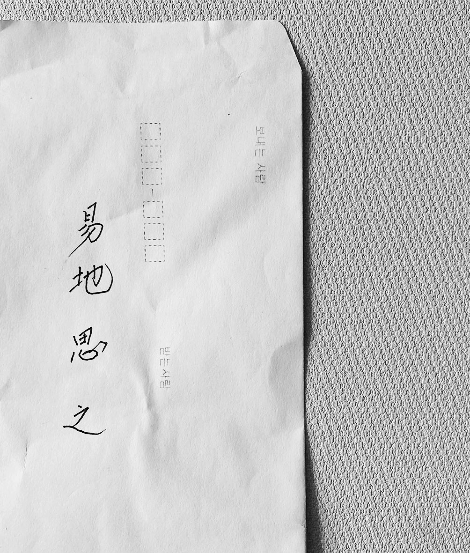 보내는 사람
받는 사람
易地思之